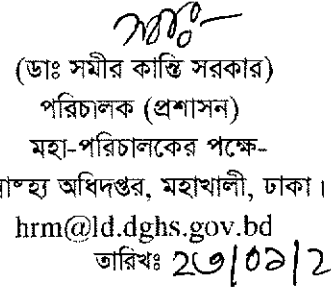 (ডাঃ সমীর কান্তি সরকার)
পরিচালক (প্রশাসন)
মহা-পরিচালকের পক্ষে-
অধিদপ্তর, মহাখালী, ঢাকা।
hrm@ld.dghs.gov.bd
তারিখঃ